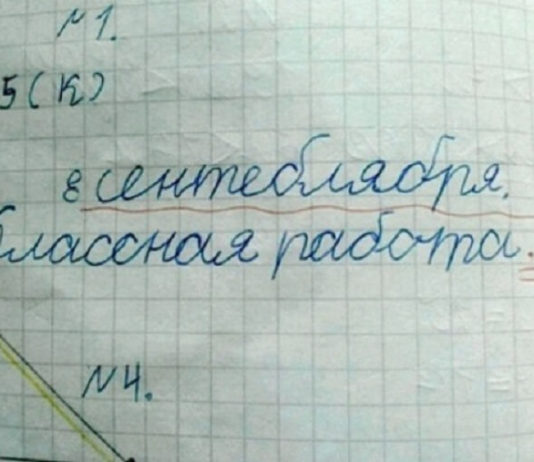 №1.
5(К)
8 сентеблября.
Классная работа.
№4.